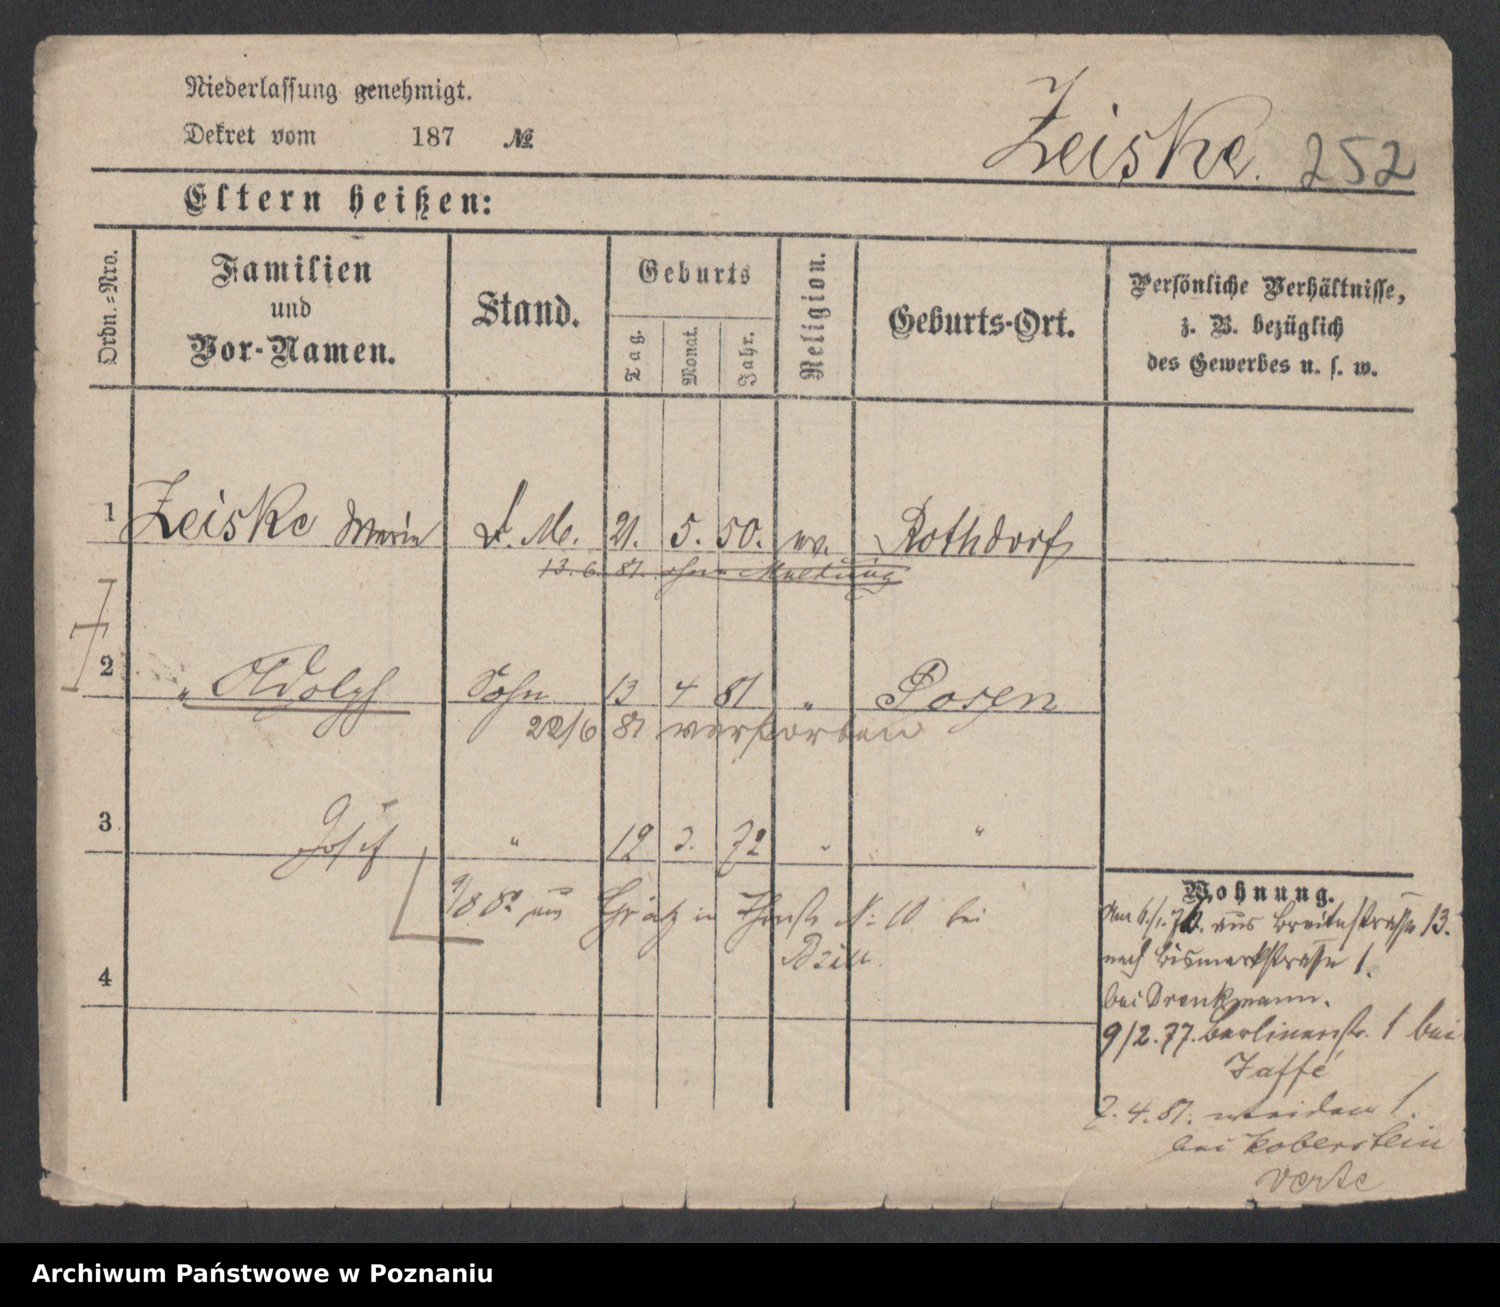 Niederlassung genehmigt.
Dekret vom 187 №
Zeiske. 252
Eltern heißen:
Ordn.-Nro.
Familien
und
Vor-Namen.
Stand.
Geburts
Tag.
Monat.
Jahr.
Religion.
Geburts-Ort.
Persönliche Verhältnisse,
z. B. bezüglich
des Gewerbes u. s. w.
1 Zeiske Marie D. M. 21. 5. 50. ev. Rothdorf
13. 6. 81. ohne Meldung
2 " Adolph Sohn 13 4 81 " Posen
22/6 81 verstorben
3 Josef " 19 3. 72 " "
9/8 82 aus Grätz in Thorstr N: 10 bei
4
Wohnung.
aus Breitestrasse 13.
nach Bismarkstrasse 1.
bei Drenkmann.
9/2. 77. Berlinerstr. 1 bei
Jaffé
2. 4. 81. 1.
bei Koberstein
verte
Archiwum Państwowe w Poznaniu